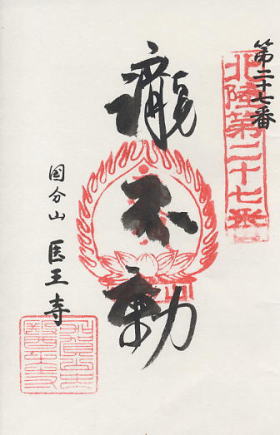 第二十七番
北陸第二十七番
瀧不動
国分山 医王寺